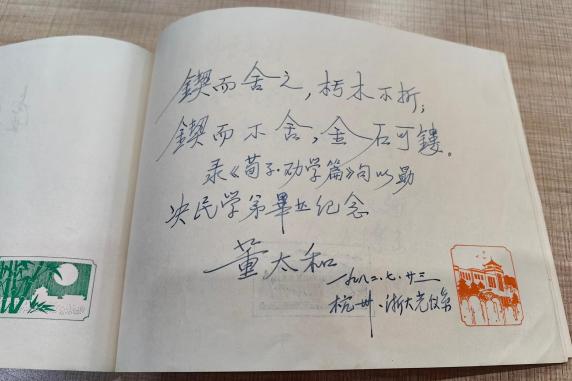 锲而舍之，朽木不折；
锲而不舍，金石可镂。
录《荀子·劝学篇》句以勖
央民学弟畢业纪念
董太和
一九八二.七.廿三
杭州·浙大光仪系